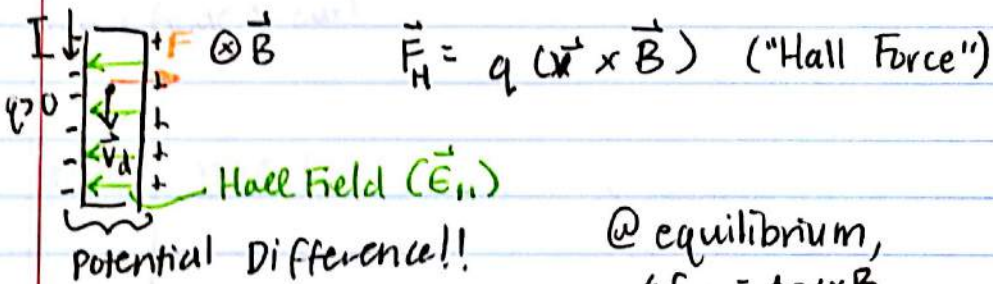 I + F ⊗ B⃗ F⃗_H = q (v⃗ × B⃗) ("Hall Force")
q>0
v⃗d
Hall Field (E⃗H)
Potential Difference!!
@ equilibrium,